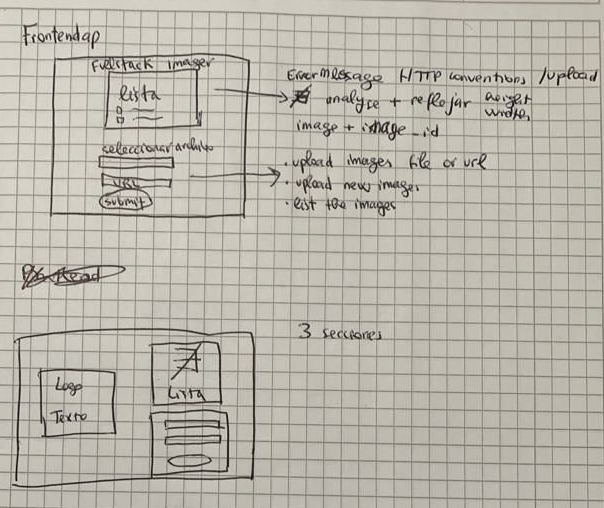 Frontendap
Fullstack imager
lista
seleccionar archivo
URL
submit
Error message HTTP conventions /upload
analyse + reflejar height
width,
image + image_id
. upload images file or url
. upload new images
. list the images
Read
3 secciones
Logo
Texto
Lista